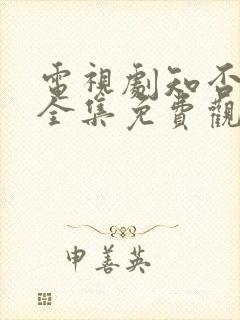 電視劇知否
全集免費觀
申善英